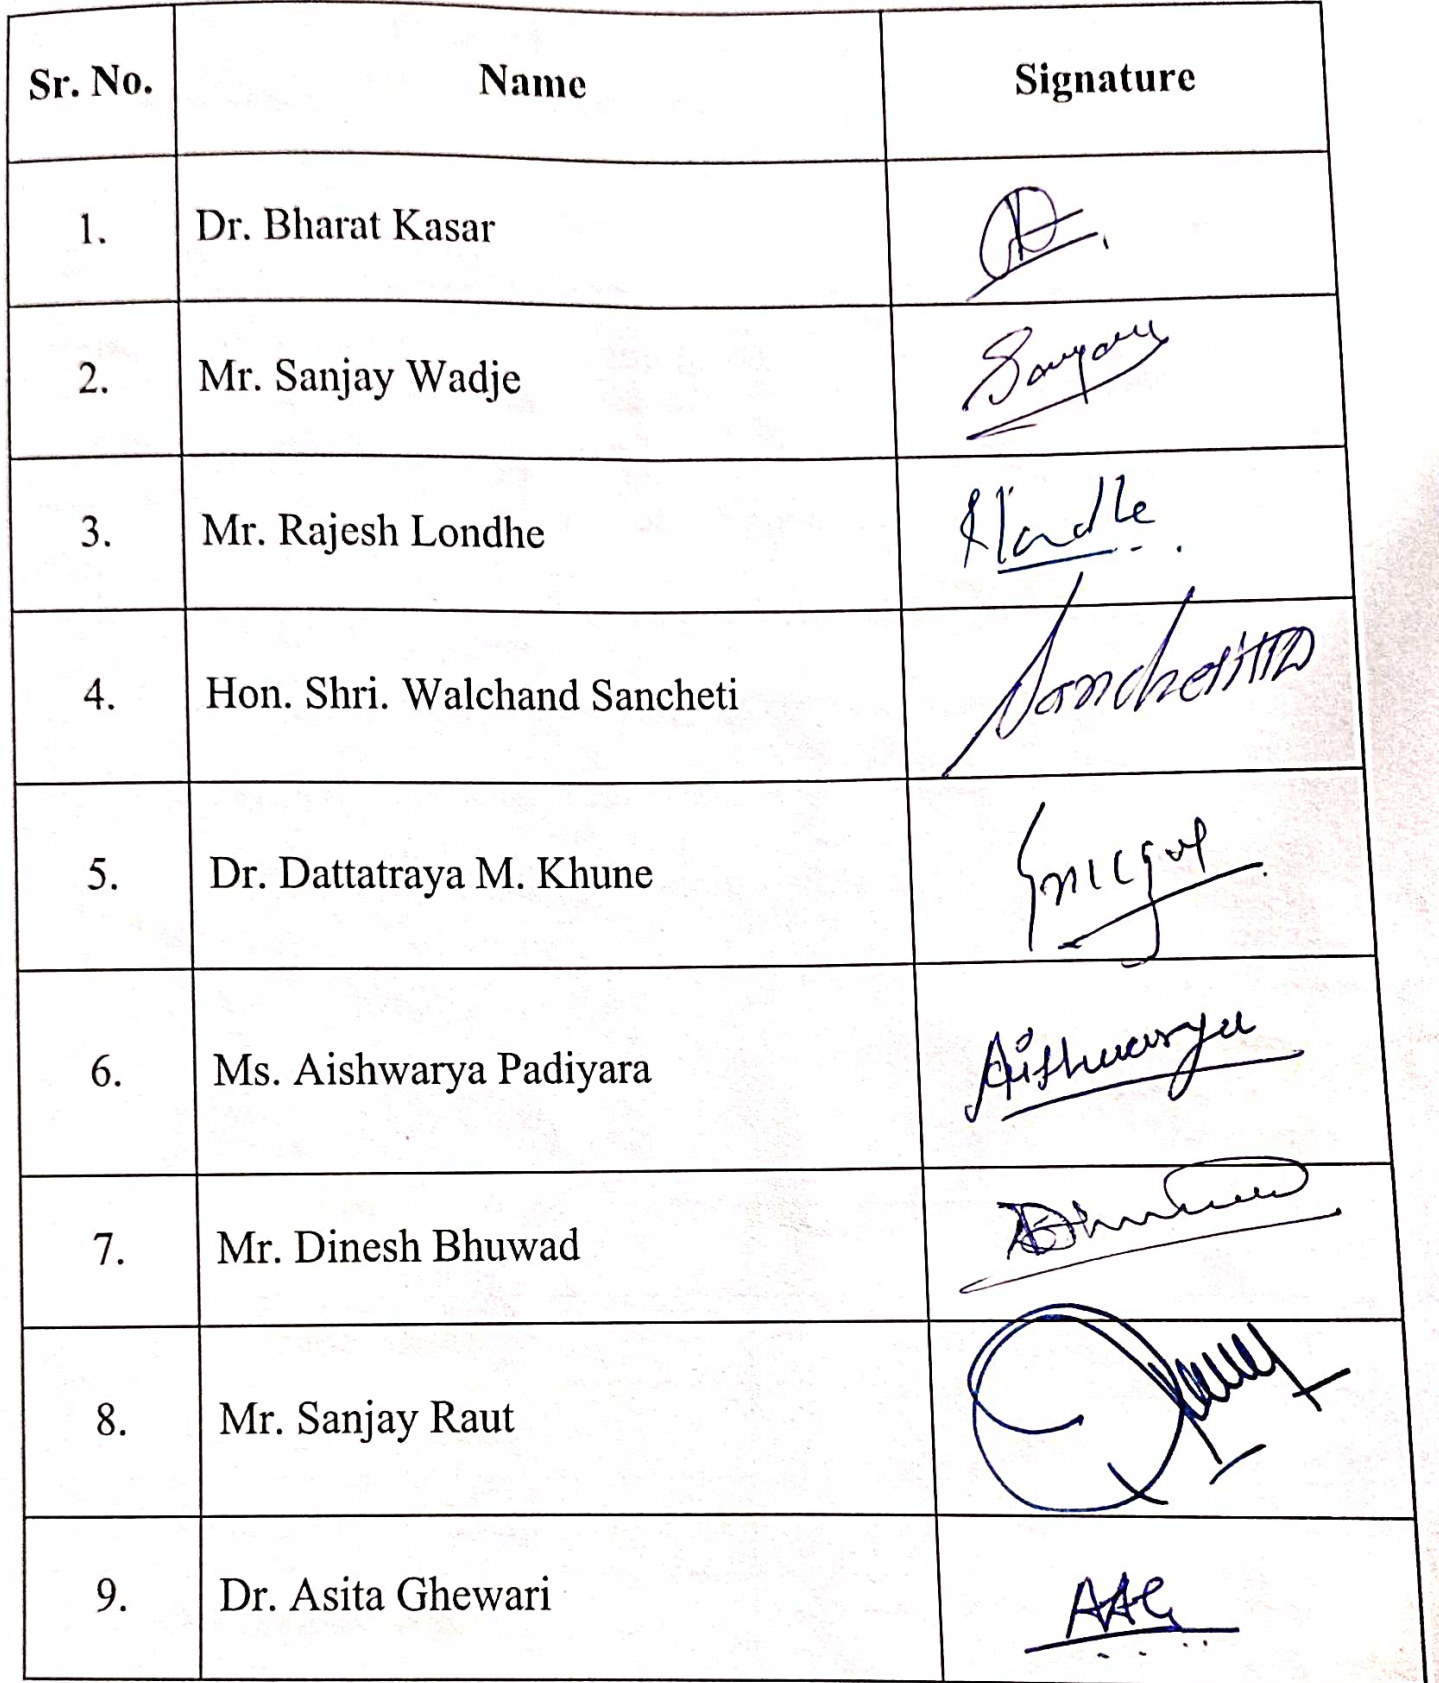 Sr. No. Name Signature
1. Dr. Bharat Kasar
2. Mr. Sanjay Wadje
3. Mr. Rajesh Londhe
4. Hon. Shri. Walchand Sancheti
5. Dr. Dattatraya M. Khune
6. Ms. Aishwarya Padiyara Aishwarya
7. Mr. Dinesh Bhuwad
8. Mr. Sanjay Raut
9. Dr. Asita Ghewari AAG